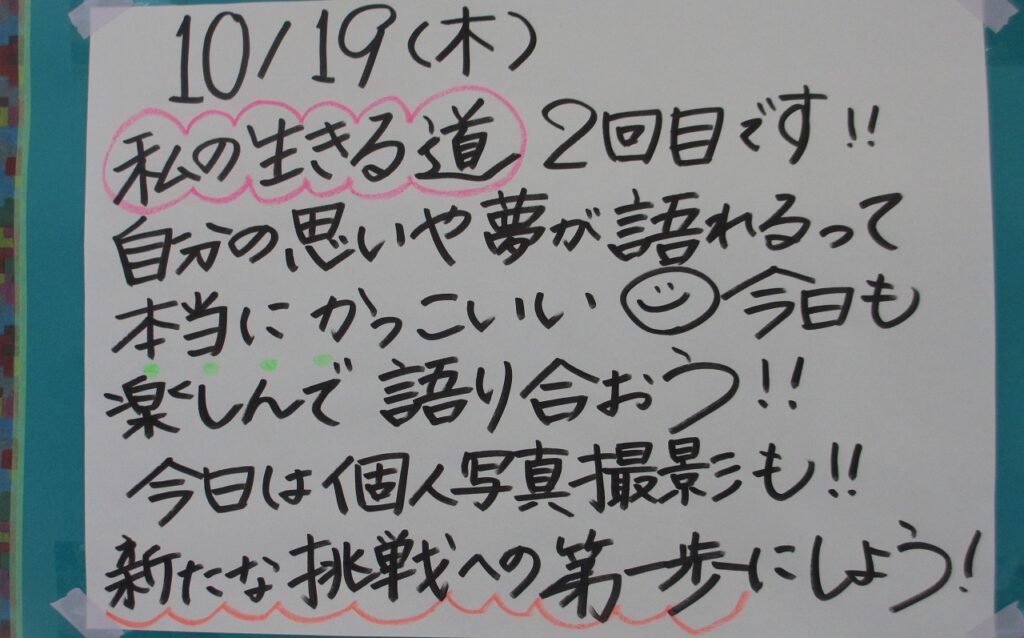 10/19(木)
私の生きる道 2回目です!!
自分の思いや夢が語れるって
本当にかっこいい 今日も
楽しんで語り合おう!!
今日は個人写真撮影も!!
新たな挑戦への第一歩にしよう!